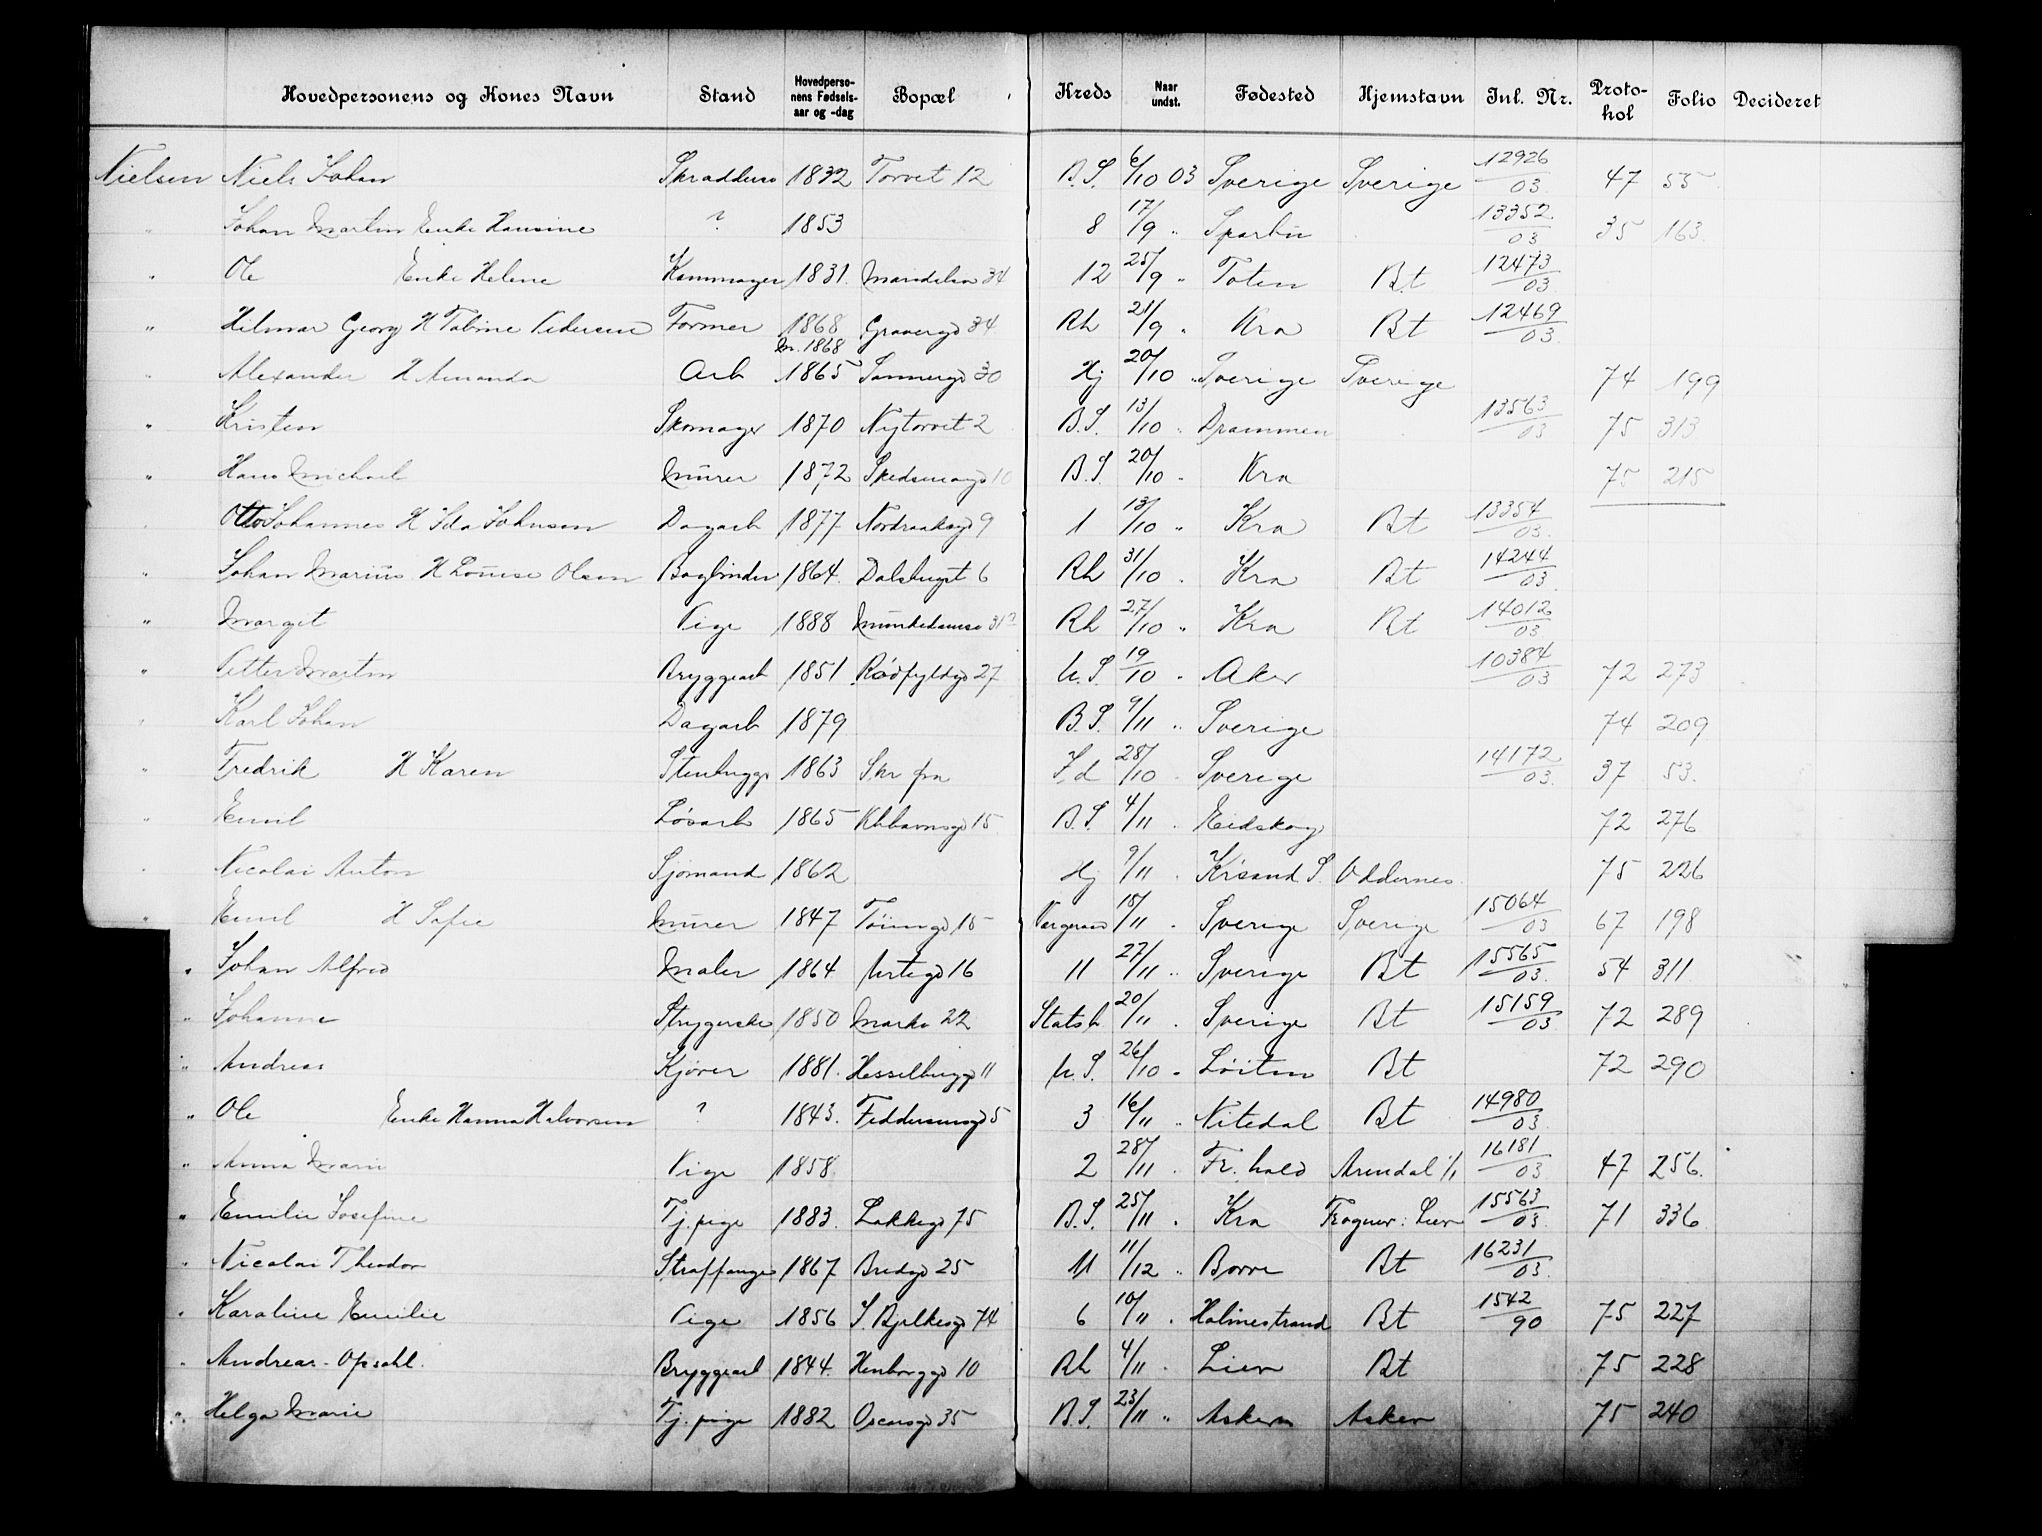 Hovedpersonens og Kones Navn Stand Hovedperso-nens Fødsels-aar og -dag Bopæl Kreds Naar undst. Fødested Hjemstavn Inl. Nr. Proto-kol Folio Decideret
Nielsen Niels Johan 1832 Torvet 12 B.S. 6/10 03 Sverige Sverige 12926/03 47 55
" Johan Martin Enke Hansine ? 1853 8 17/9 " Sparbu 13352/03 35 163
" Ole Enke Helene Kammager 1831 34 12 25/9 " Toten Bt 12473/03
" Hilmar Georg H Pedersen Former 1868 m. 1868 34 Rh 21/9 " Kra Bt 12469/03
" Alexander H Amanda Arb 1865 Sannergd 30 Hj 20/10 " Sverige Sverige 74 199
" Kristen Skomager 1870 Nytorvet 2 B.S. 13/10 " Drammen 13563/03 75 313
" Hans Michael Murer 1872 10 B.S. 20/10 " Kra 75 215
" Otto Johannes H Ida Johnsen Dagarb 1877 Nordraaksgd 9 1 13/10 " Kra Bt 13354/03
" Johan Marius H Louise Olsen Bogbinder 1864 6 Rh 31/10 " Kra Bt 14244/03
" Margit Pige 1888 Rh 27/10 " Kra Bt 14012/03
" Petter Martin Bryggearb 1851 Rødfyldgd 27 U.S. 19/10 " Aker 10384/03 72 273
" Karl Johan Dagarb 1879 B.S. 9/11 " Sverige 74 209
" Fredrik H Karen Stenhugger 1863 Skr fra 28/10 " Sverige 14172/03 37 53
" Emil Løsarb 1865 Khhavnsgd 15 B.S. 4/11 " Eidskog 72 276
" Nicolai Anton Sjømand 1862 Hj 9/11 " Kr.sand S. Oddernes 75 226
" Emil H Sofie Murer 1847 Tøiengd 15 /11 " Sverige Sverige 15064/03 67 198
" Johan Alfred Maler 1864 Urtegd 16 11 27/11 " Sverige Bt 15565/03 54 311
" Johanne Strygerske 1850 Markv 22 Statsb 20/11 " Sverige Bt 15159/03 72 289
" Andreas Kjører 1881 Hesselbergg 11 U.S. 26/10 " Løiten Bt 72 290
" Ole Enke Hanna Halvorsen ? 1843 Feddersensgd 5 3 16/11 " Nitedal Bt 14980/03
" Anna Marie Pige 1858 2 28/11 " Fr. hald Arendal 1/1 16181/03 47 256
" Emilie Josefine Tj. pige 1883 Lakkegd 75 B.S. 25/11 " Kra Frogner i Lier 15563/03 71 336
" Nicolai Theodor Straffange 1867 Bredgd 25 11 11/12 " Borre Bt 16231/03
" Karoline Emilie Pige 1856 J. Bjelkesgd 74 6 10/11 " Holmestrand Bt 1542/90 75 227
" Andreas - Opsahl. Bryggearb 1844 10 Rh 4/11 " Lier Bt 75 228
" Helga Marie Tj. pige 1882 Oscarsgd 35 B.S. 23/11 " Askern Asker 75 240